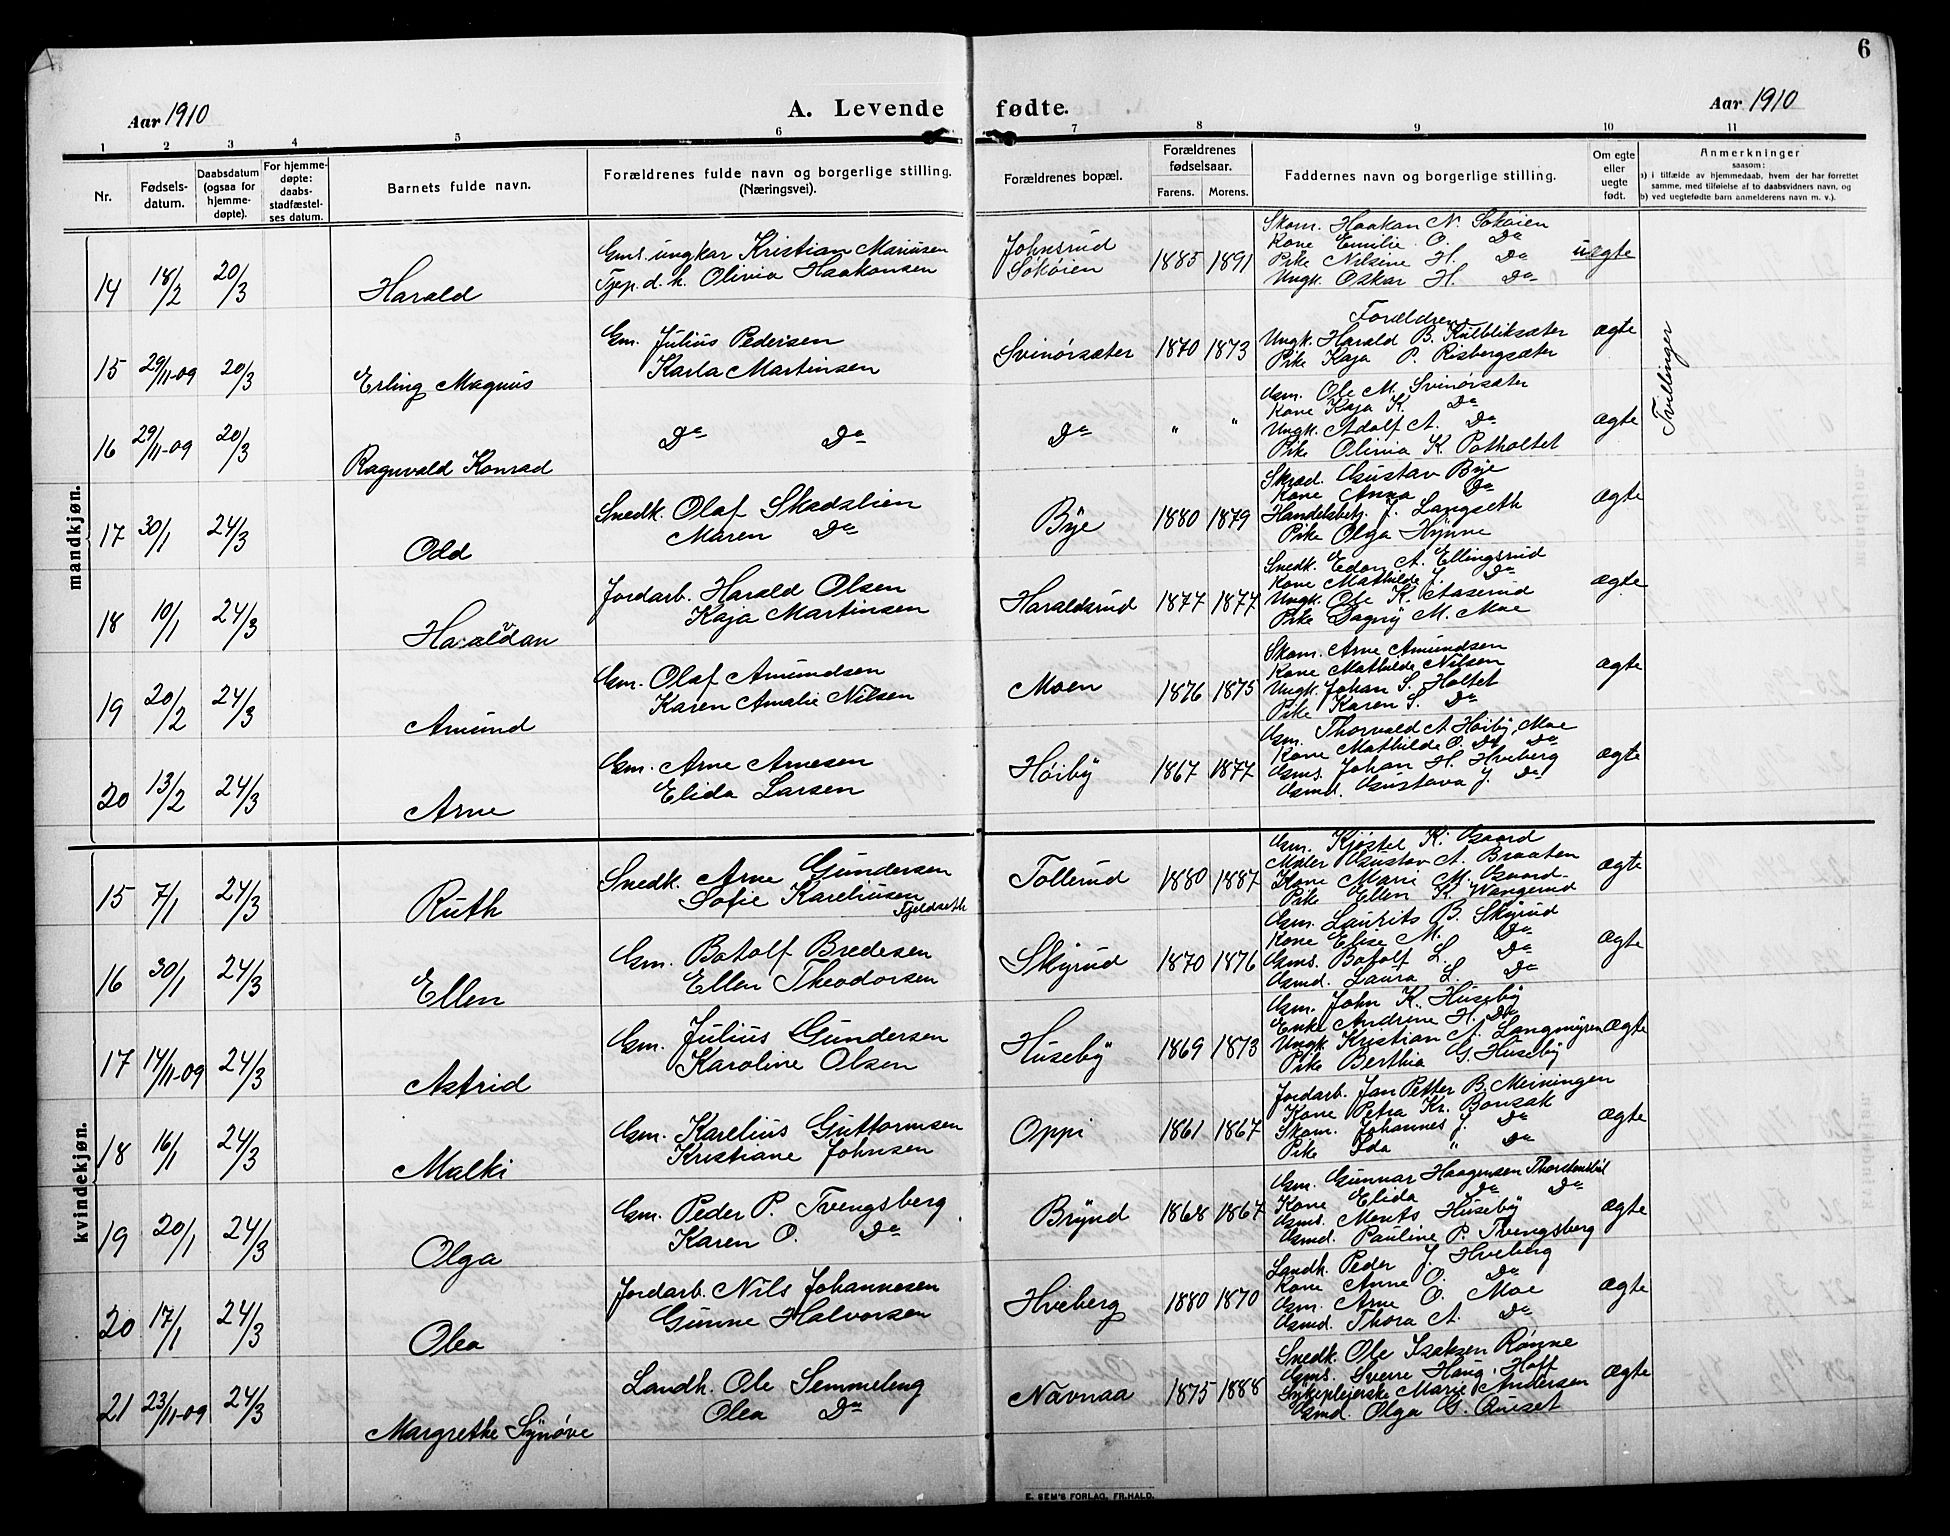 6
Aar 1910
A. Levende fødte.
Aar 1910
1 2 3 4 5 6 7 8 9 10 11
Nr.
Fødsels-
datum.
Daabsdatum
(ogsaa for
hjemme-
døpte).
For hjemme-
døpte:
daabs-
stadfæstel-
ses datum.
Barnets fulde navn.
Forældrenes fulde navn og borgerlige stilling.
(Næringsvei).
Forældrenes bopæl.
Forældrenes
fødselsaar.
Farens. Morens.
Faddernes navn og borgerlige stilling.
Om egte
eller
uegte
født.
Anmerkninger
saasom:
a) i tilfælde av hjemmedaab, hvem der har forrettet
samme, med tilføielse af to daabsvidners navn, og
b) ved uegtefødte barn anmelderens navn m. v.).
mandkjøn.
14 18/2 20/3 Harald
Gms. ungkar Kristian Mariusen
Tjep. d. k. Olivia Haakonsen
Johnsrud
Sokøien
1885 1891
Skom. Haakan N. Sokøien
Kone Emilie O. Do
Pike Nilsine H. Do
Ungk. Oskar H. Do
uægte
15 29/11-09 20/3 Erling Magnus
Gm. Julius Pedersen
Karla Martinsen
Svinørsæter
1870 1873
Forældrene
Ungk. Harald B. Kulbliksæter
Pike Kaja P. Risbergsæter
ægte
Tvillinger
16 29/11-09 20/3 Ragnvald Konrad
Do Do
Do
" "
Gm. Ole M. Svinørsæter
Kone Kaja K. Do
Ungk. Adolf A. Do
Pike Olivia K. Potholtet
ægte
17 30/1 24/3 Odd
Snedk. Olaf Skadslien
Maren Do
Bye
1880 1879
Skræd. Gustav Bye
Kone Anna Do
Handelsbetj. J. Langseth
Pike Olga Hynne
ægte
18 10/1 24/3
Jordarb. Harald Olsen
Kaja Martinsen
Haraldsrud
1877 1877
Snedk. Edon A. Ellingsrud
Kone Mathilde J. Do
Ungk. Ole K. Aaserud
Pike Dagny M. Moe
ægte
19 20/2 24/3 Amund
Gm. Olaf Amundsen
Karen Amalie Nilsen
Moen
1876 1875
Skom. Arne Amundsen
Kone Mathilde Nilsen
Ungk. Johan S. Holtet
Pike Karen S. Do
ægte
20 13/2 24/3 Arne
Gm. Arne Arnesen
Elida Larsen
Høiby
1867 1877
Gm. Thorvald A Høiby, Moe
Kone Mathilde O. Do Do
Gms. Johan H. Hveberg
Gmd. Gustava J. Do
ægte
kvindekjøn.
15 7/1 24/3 Ruth
Snedk. Arne Gundersen
Sofie Kareliusen
Fjeldseth
Tollerud
1880 1887
Gm. Kjøstel K. Gaard
Maler Gustav A. Braaten
Kone Marie M. Gaard
Pike Ellen K. Wangerud
ægte
16 30/1 24/3 Ellen
Gm. Botolf Bredesen
Ellen Theodorsen
Skyrud
1870 1876
Gm. Laurits B. Skyrud
Kone Elise M. Do
Gms. Botolf L. Do
Gmd. Laura L. Do
ægte
17 14/11-09 24/3 Astrid
Gm. Julius Gundersen
Karoline Olsen
Huseby
1869 1873
Gm. John K. Huseby
Enke Andrine H. Do
Ungk. Kristian A. Langmyren
Pike Berthia G. Huseby
ægte
18 16/1 24/3 Malki
Gm. Karelius Guttormsen
Kristiane Johnsen
Oppi
1861 1867
Jordarb. Jan Petter B. Meiningen
Kone Petra Kr. Bonsak
Skom. Johannes J. Do
Pike Ida " Do
ægte
19 20/1 24/3 Olga
Gm. Peder P. Tvengsberg
Karen O. Do
Brynd
1868 1867
Gm. Gunnar Haagensen
Kone Elida Do Do
Gms. Ments Huseby
Gmd. Pauline P. Tvengsberg
ægte
20 17/1 24/3 Olea
Jordarb. Nils Johannesen
Gunne Halvorsen
Hveberg
1880 1870
Landh. Peder J. Hveberg
Kone Anne O. Do
Gm. Arne O. Moe
Gmd. Thora A. Do
ægte
21 23/11-09 24/3 Margrethe Synøve
Landh. Ole Semmeleng
Olea Do
Navnaa
1875 1888
Snedk. Ole Isaksen Rønne
Gms. Sverre Haug, Hoff
Sykeplejerske Marie Andersen
Gmd. Olga G. Quiset
ægte
E. SEM'S FORLAG, FR.HALD.